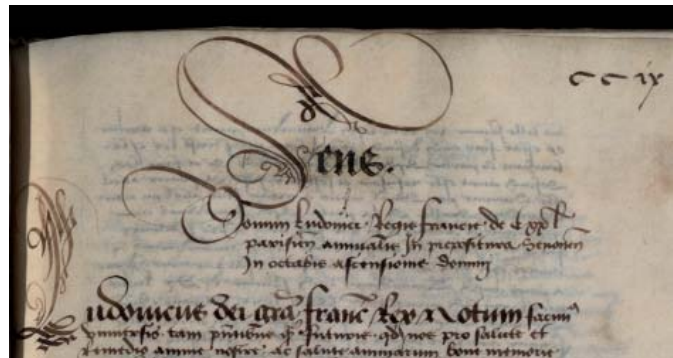 cc ix
Sens.
Donum Ludovici Regis francie de C xx l
parisien annualis In prepositura Senonen
In octabis ascensionis domini
Ludovicus dei gra franc Rex Notum facim9
universis tam pntibus q3 futuris qd nos pro salute et
remedio anime nostre ac salute animarum bone memorie